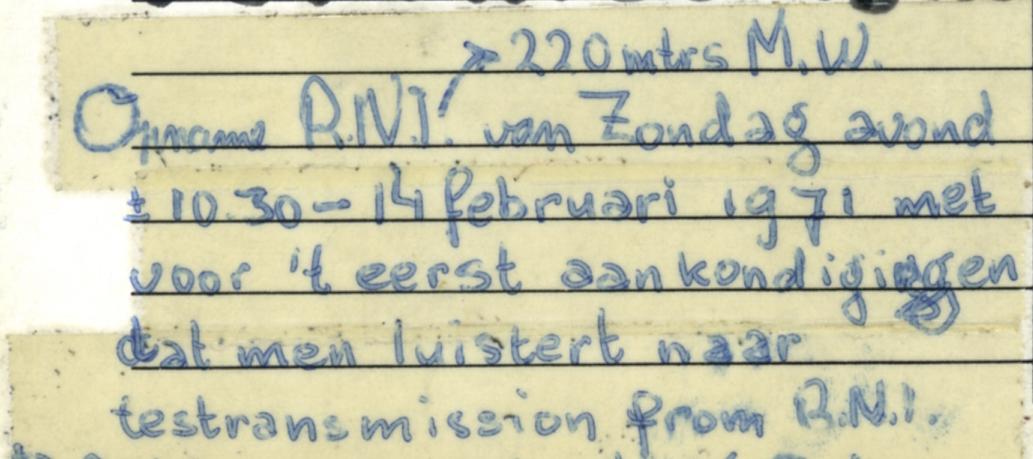 220 mtrs M.W.
Opname R.N.I. van Zondag avond
± 10.30 - 14 februari 1971 met
voor 't eerst aankondigingen
dat men luistert naar
testransmission from R.N.I.